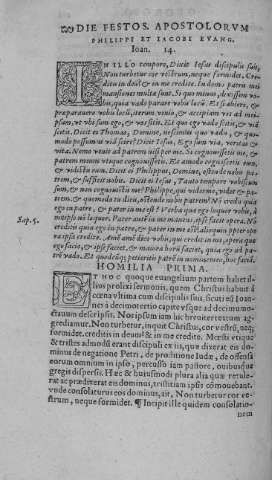 DIE FESTOS. APOSTOLORVM
PHILIPPI ET IACOBI EVANG.
Ioan. 14.
IN ILLO tempore, Dixit Iesus discipulis suis,
Non turbetur cor vestrum, neque formidet. Creditis
in deũ? & in me credite. In domo patris mei
mansiones multæ sunt. Si quo minus, dixissem vobis,
quia vado parare vobis locũ. Et si abiero, &
præparauero vobis locũ, iterum venio, & accipiam vos ad meipsum,
vt vbi sum ego, & vos sitis. Et quo ego vado scitis, & viã
scitis. Dicit ei Thomas, Domine, nescimus quo vadis, & quomodo
possumus viã scire? Dicit Iesus, Ego sum via, veritas &
vita. Nemo venit ad patrem nisi per me. Si cognouissetis me, &
patrem meum vtique cognouissetis. Et amodo cognoscetis eum,
& vidistis eum. Dicit ei Philippus, Domine, ostende nobis patrem,
& sufficit nobis. Dicit ei Iesus, Tanto tempore vobiscum
sum, & non cognouistis me? Philippe, qui videt me, videt &
patrem. Quomodo tu dicis, ostende nobis patrem? Nõ credis quia
ego in patre, & pater in me est? Verba quæ ego loquor vobis, à
meipso nõ loquor. Pater autem in me manens, ipse facit opera. Nõ
creditis quia ego in patre, & pater in me est? alioquin
opera
credite. Amẽ amẽ dico vobis, qui credit in me, opera quæ
ego facio, & ipse faciet, & maiora horũ faciet, quia ego ad patrẽ
vado. Et quodcũq; petieritis patrẽ in nomine meo, hoc faciã.
Sap. 5.
HOMILIA PRIMA.
ET HOC quoque euangelium partem habet illius
prolixi sermonis, quem Christus habuit à
cœna vt coram discipulis suis, sicuti eũ Ioannes
à decimotertio capite vsque ad decimumoctauum
descripsit. Nos ipsum iam hic breuiter
aggrediamur. Non turbetur, inquit Christus, cor vestrũ, neque
formidet. Creditis in deum? & in me credite. Mœsti
& tristes admodũ erant discipuli ex iis, quæ dixerat en domi
nus de negatione Petri, de proditione Iudæ, de offensa
eorum omnium in ipso, percusso iam pastore, ouibusque
gregis dispersis. Hæc & huiusmodi plura alia quæ
præditerat en dominus, tristitiam ipsis commouebant.
vnde consolaturus eos dominus, ait, Non turbetur cor vestrum,
neque formidet. ¶ Incipit ille quidem consolationem